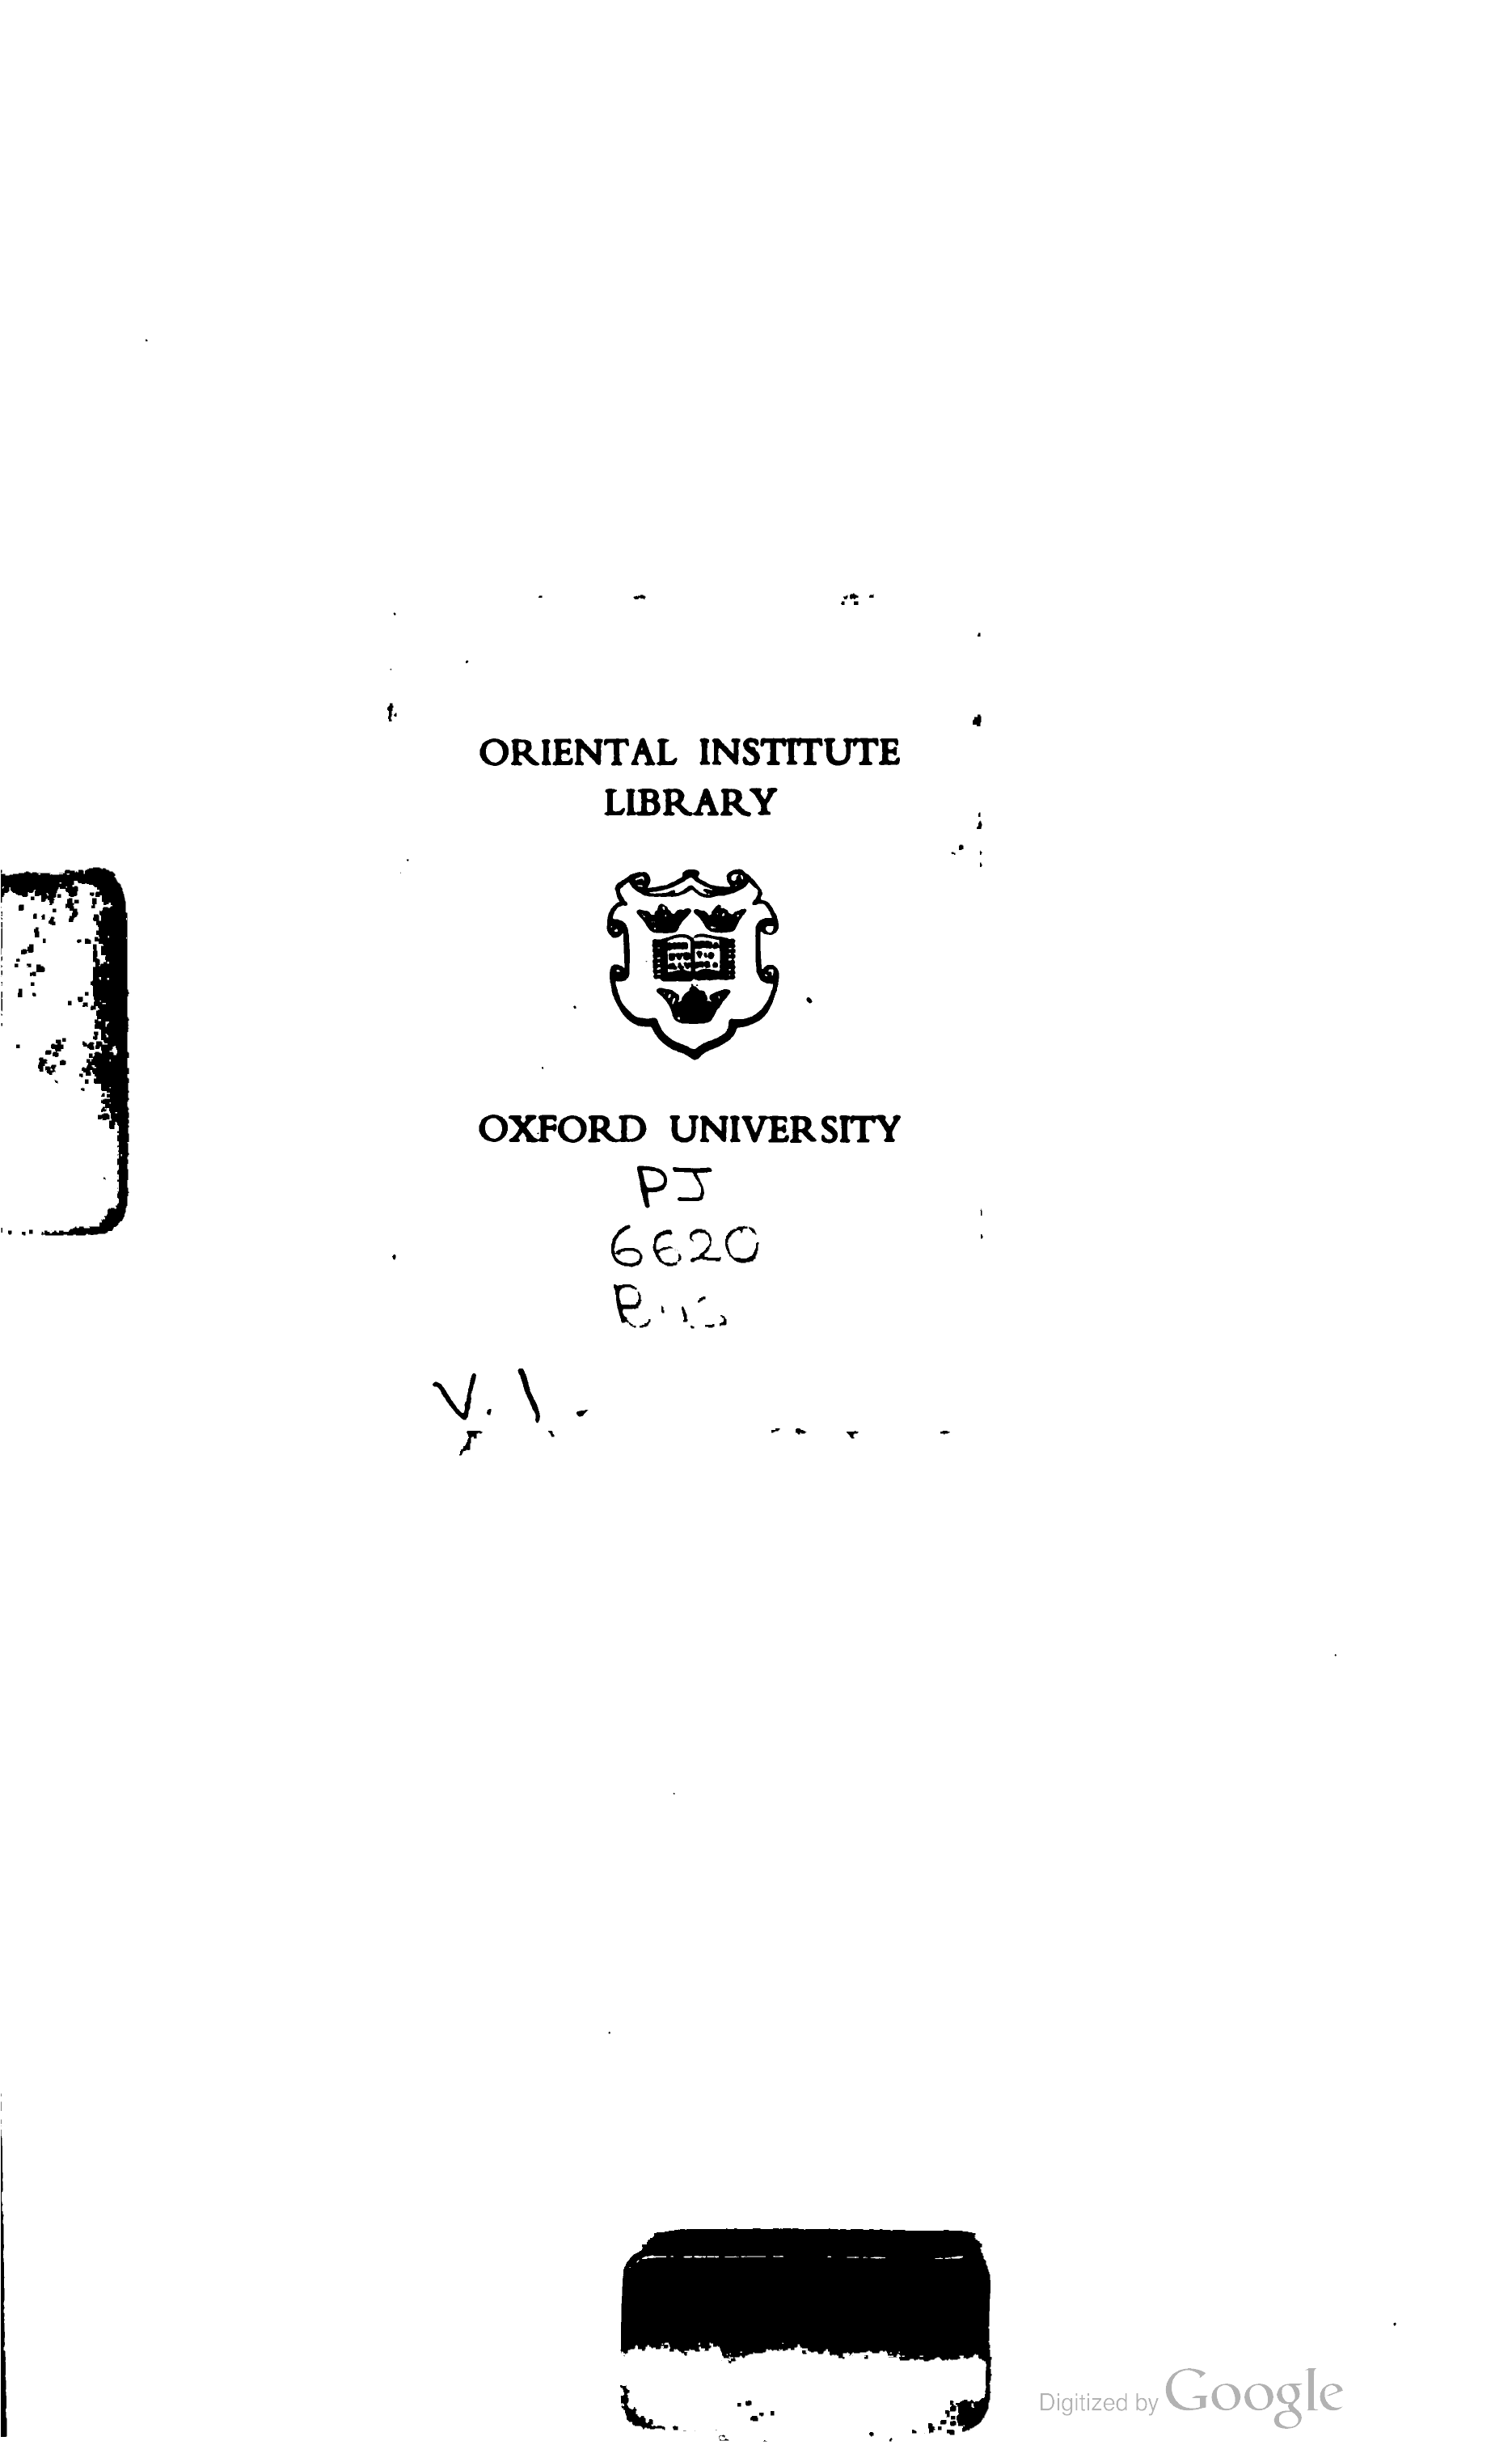 ORIENTAL INSTITUTE
LIBRARY
OXFORD UNIVERSITY
PJ
6620
V. 1.
Digitized by Google